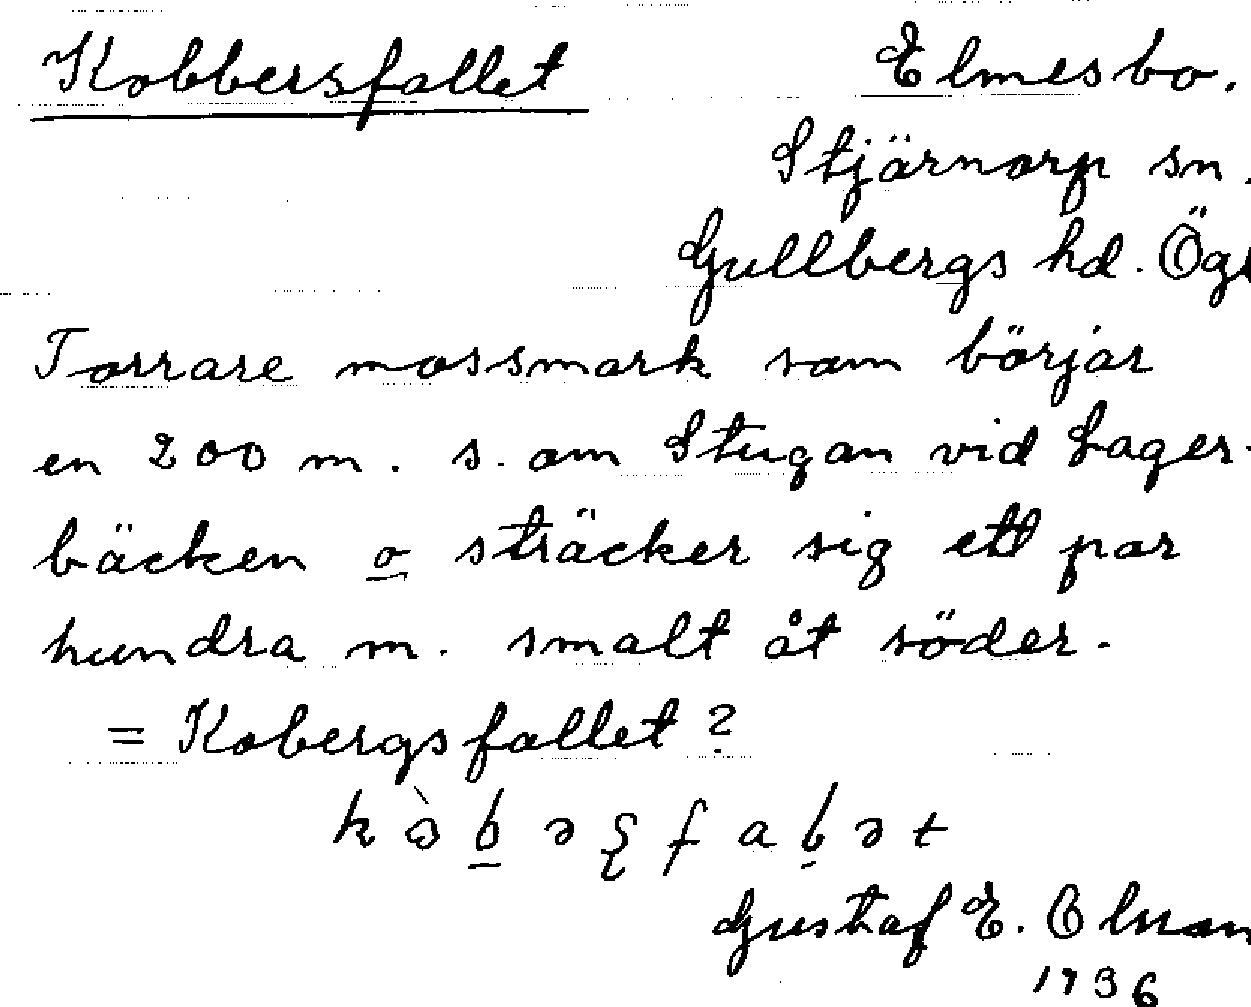 Kobbersfallet Elmesbo.
Stjärnorp sn.
Gullbergs hd. Ög
Torrare mossmark som börjar
en 200 m. s. om Stugan vid Lager-
bäcken o sträcker sig ett par
hundra m. smalt åt söder.
= Kobergsfallet?
Gustaf E.
1936